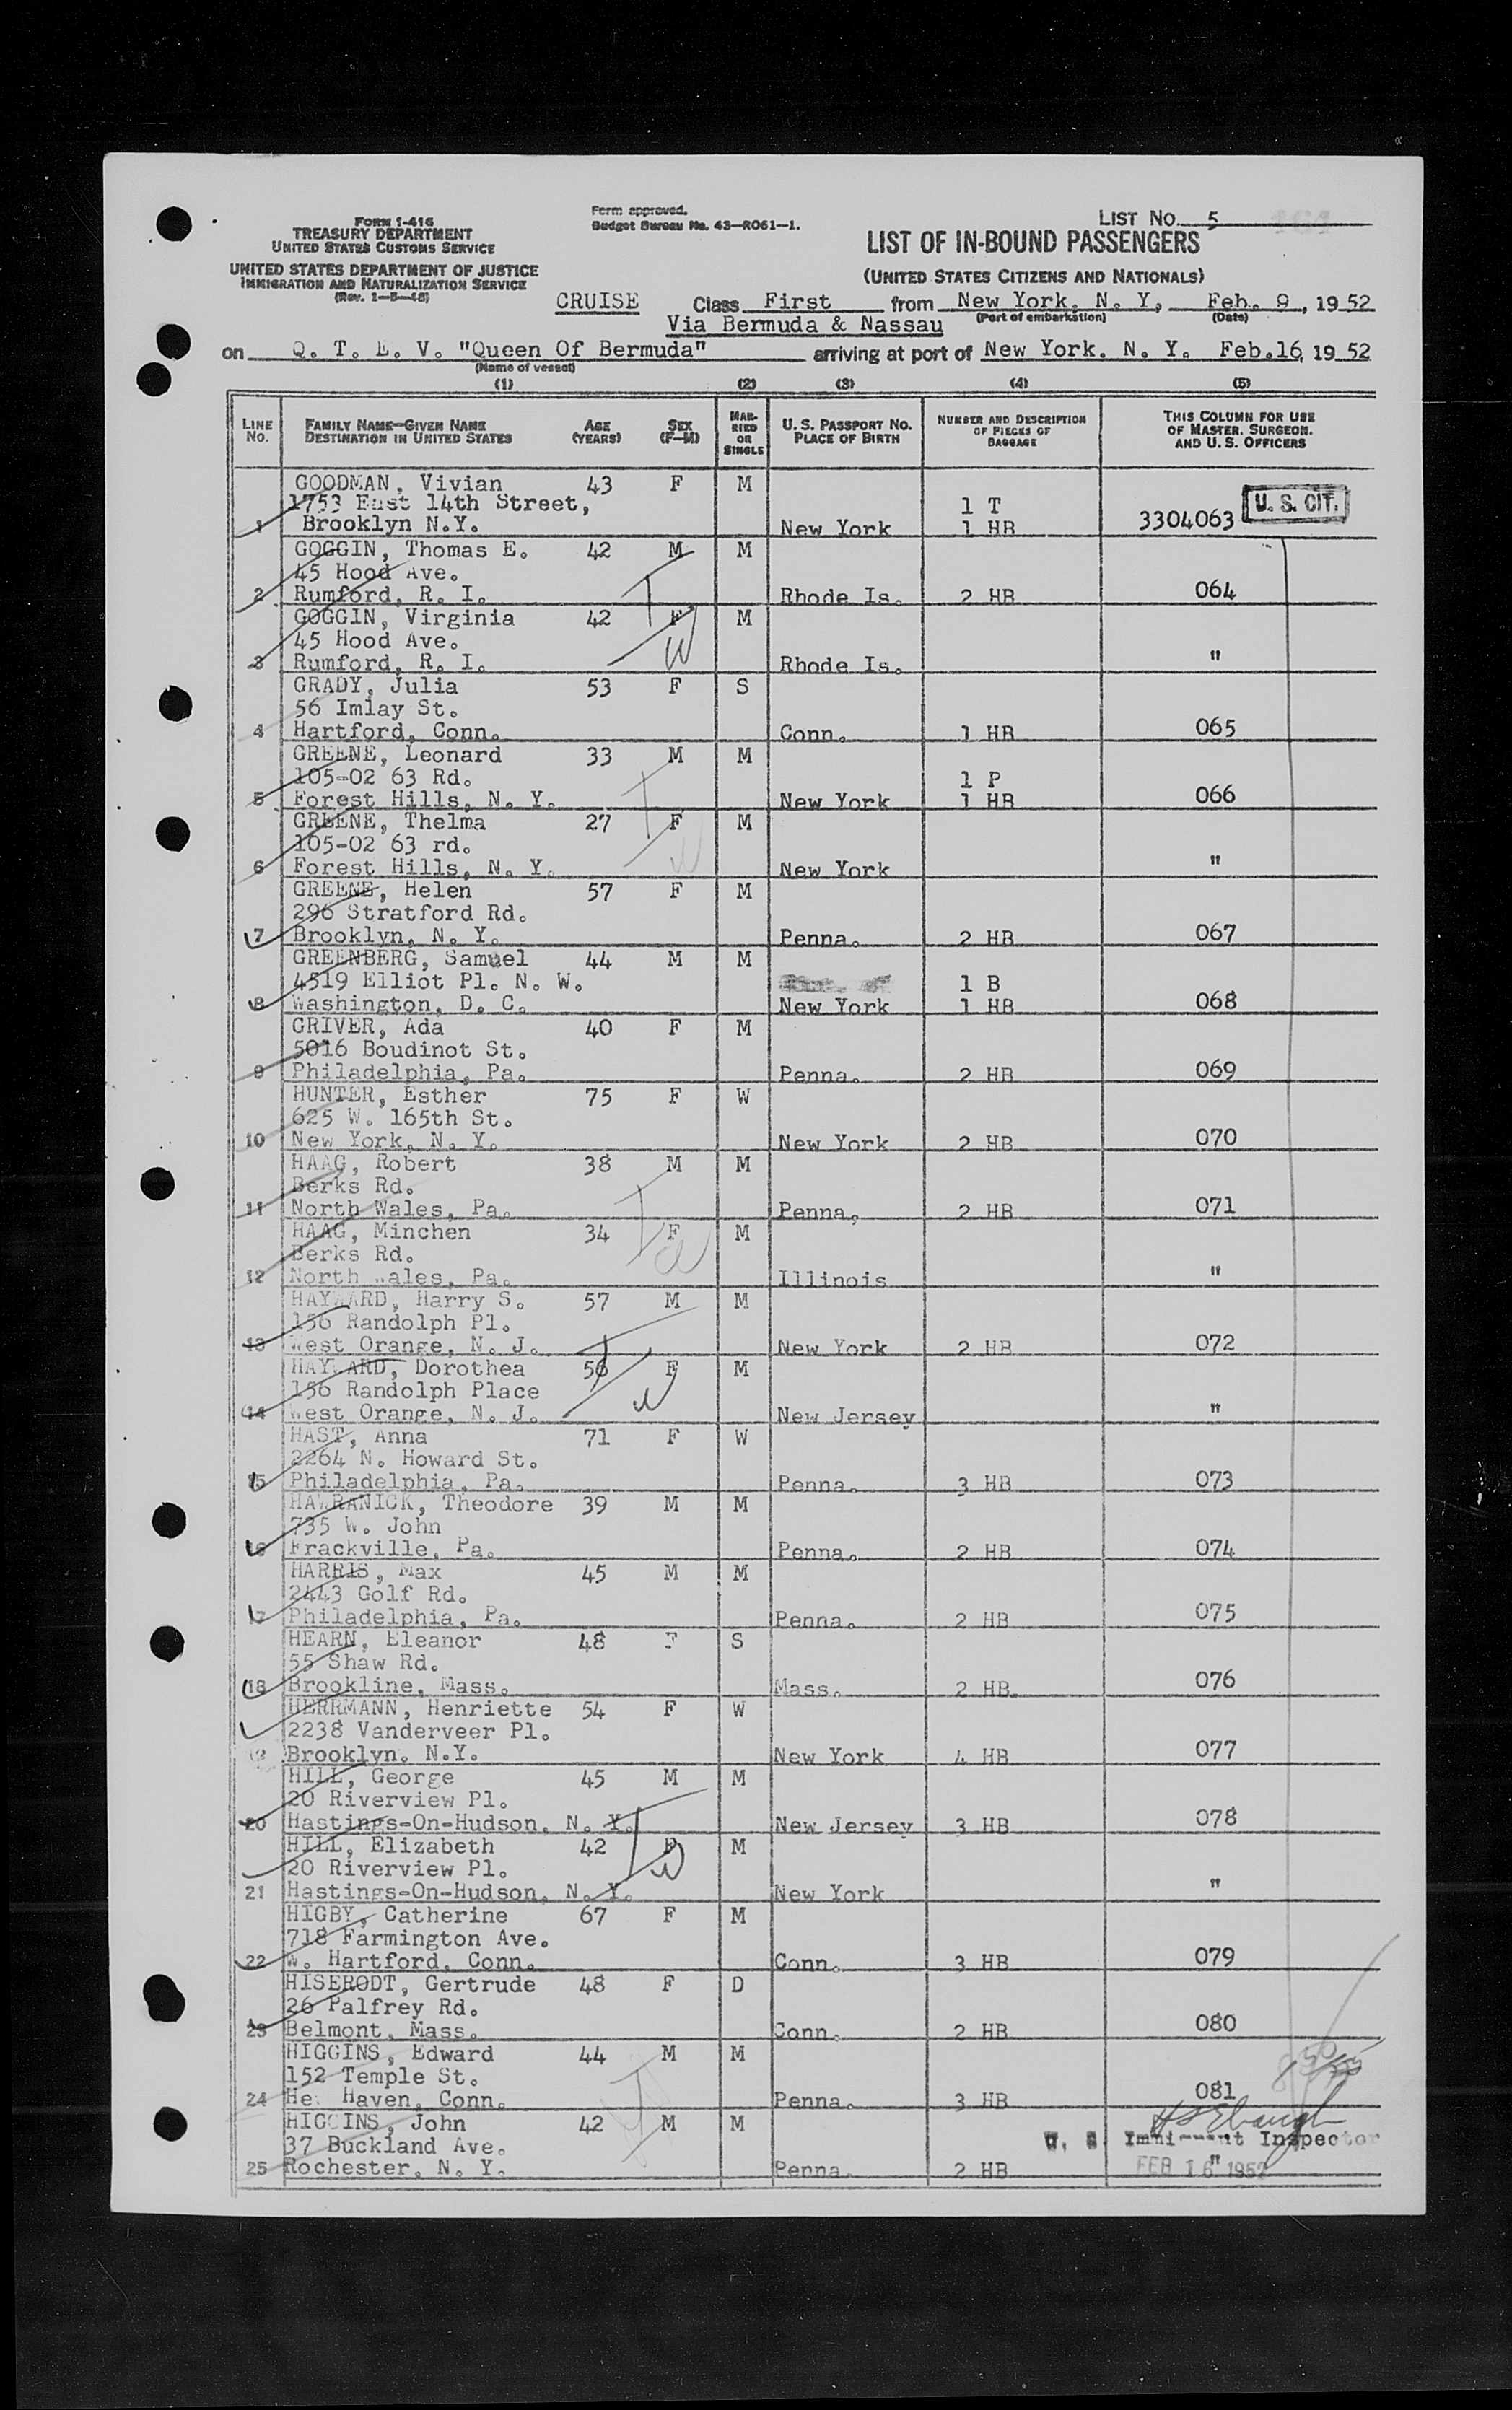 FORM I-416
TREASURY DEPARTMENT
UNITED STATES CUSTOMS SERVICE
UNITED STATES DEPARTMENT OF JUSTICE
IMMIGRATION AND NATURALIZATION SERVICE
(Rev. 1-5-48)
Form approved.
Budget Bureau No. 43-RO61-1.
LIST NO. 5
LIST OF IN-BOUND PASSENGERS
(UNITED STATES CITIZENS AND NATIONALS)
CRUISE Class First from New York, N. Y, Feb. 9, 1952
Via Bermuda & Nassau (Port of embarkation) (Date)
on Q. T. E. V. "Queen Of Bermuda" arriving at port of New York. N. Y. Feb.16, 1952
(Name of vessel)
(1) (2) (3) (4) (5)
LINE No. FAMILY NAME-GIVEN NAME DESTINATION IN UNITED STATES AGE (YEARS) SEX (F-M) MARRIED OR SINGLE U. S. PASSPORT NO. PLACE OF BIRTH NUMBER AND DESCRIPTION OF PIECES OF BAGGAGE THIS COLUMN FOR USE OF MASTER, SURGEON, AND U. S. OFFICERS
GOODMAN, Vivian 43 F M
1753 East 14th Street, 1 T U. S. CIT.
1 Brooklyn N.Y. New York 1 HB 3304063
GOGGIN, Thomas E. 42 M M
45 Hood Ave.
2 Rumford, R. I. Rhode Is. 2 HB 064
GOGGIN, Virginia 42 F M
45 Hood Ave.
3 Rumford, R. I. Rhode Is. "
GRADY, Julia 53 F S
56 Imlay St.
4 Hartford, Conn. Conn. 1 HB 065
GREENE, Leonard 33 M M
105-02 63 Rd. 1 P
5 Forest Hills, N. Y. New York 1 HB 066
GREENE, Thelma 27 F M
105-02 63 rd.
6 Forest Hills, N. Y. New York "
GREENE, Helen 57 F M
296 Stratford Rd.
7 Brooklyn, N. Y. Penna. 2 HB 067
GREENBERG, Samuel 44 M M
4519 Elliot Pl. N. W. 1 B
8 Washington, D. C. New York 1 HB 068
GRIVER, Ada 40 F M
5016 Boudinot St.
9 Philadelphia, Pa. Penna. 2 HB 069
HUNTER, Esther 75 F W
625 W. 165th St.
10 New York, N. Y. New York 2 HB 070
HAAG, Robert 38 M M
Berks Rd.
11 North Wales, Pa. Penna. 2 HB 071
HAAG, Minchen 34 F M
Berks Rd.
12 North Wales, Pa. Illinois "
HAYWARD, Harry S. 57 M M
156 Randolph Pl.
13 West Orange, N. J. New York 2 HB 072
HAYWARD, Dorothea 56 F M
156 Randolph Place
14 West Orange, N. J. New Jersey "
HAST, Anna 71 F W
2264 N. Howard St.
15 Philadelphia, Pa. Penna. 3 HB 073
HAWRANICK, Theodore 39 M M
735 W. John
16 Frackville, Pa. Penna. 2 HB 074
HARRIS, Max 45 M M
2443 Golf Rd.
17 Philadelphia, Pa. Penna. 2 HB 075
HEARN, Eleanor 48 F S
55 Shaw Rd.
18 Brookline, Mass. Mass. 2 HB 076
HERRMANN, Henriette 54 F W
2238 Vanderveer Pl.
19 Brooklyn. N.Y. New York 4 HB 077
HILL, George 45 M M
20 Riverview Pl.
20 Hastings-On-Hudson, N. Y. New Jersey 3 HB 078
HILL, Elizabeth 42 F M
20 Riverview Pl.
21 Hastings-On-Hudson, N. Y. New York "
HIGBY, Catherine 67 F M
718 Farmington Ave.
22 W. Hartford, Conn. Conn. 3 HB 079
HISERODT, Gertrude 48 F D
26 Palfrey Rd.
23 Belmont, Mass. Conn. 2 HB 080
HIGGINS, Edward 44 M M
152 Temple St.
24 Haven, Conn. Penna. 3 HB 081
HIGGINS, John 42 M M
37 Buckland Ave. U. S. Immigrant Inspector
25 Rochester, N. Y. Penna. 2 HB "
FEB 16 1952